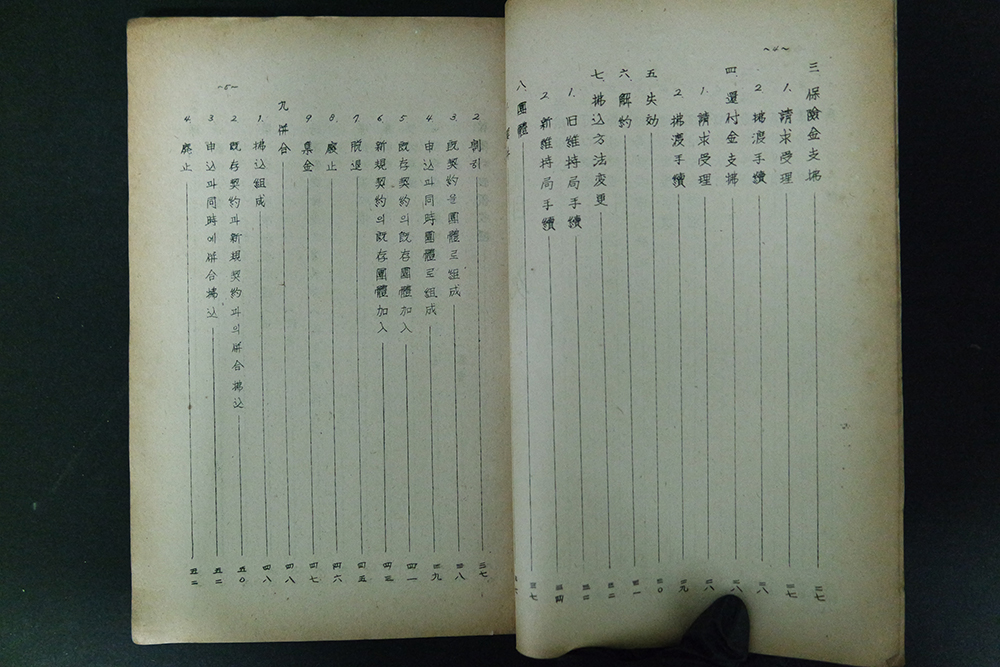 ~4~
三 保險金支拂 二七
1. 請求受理 二七
2. 拂渡手續 二八
四 還付金支拂 二八
1. 請求受理 二八
2. 拂渡手續 二九
五 失効 三〇
六 解約 三一
七 拂込方法変更 三三
1. 旧維持局手續 三三
2. 新維持局手續 三四
八 團體
~5~
2 割引 三七
3. 既契約을團體로組成 三八
4. 申込과同時團體로組成 三九
5 既存契約의既存團體加入 四一
6 新規契約의既存團體加入 四三
7. 脫退 四五
8. 廢止 四六
9 集金 四七
九 倂合 四八
1. 拂込組成 四八
2 既存契約과新規契約과의倂合拂込 五〇
3 申込과同時에倂合拂込 五二
4. 廢止 五二